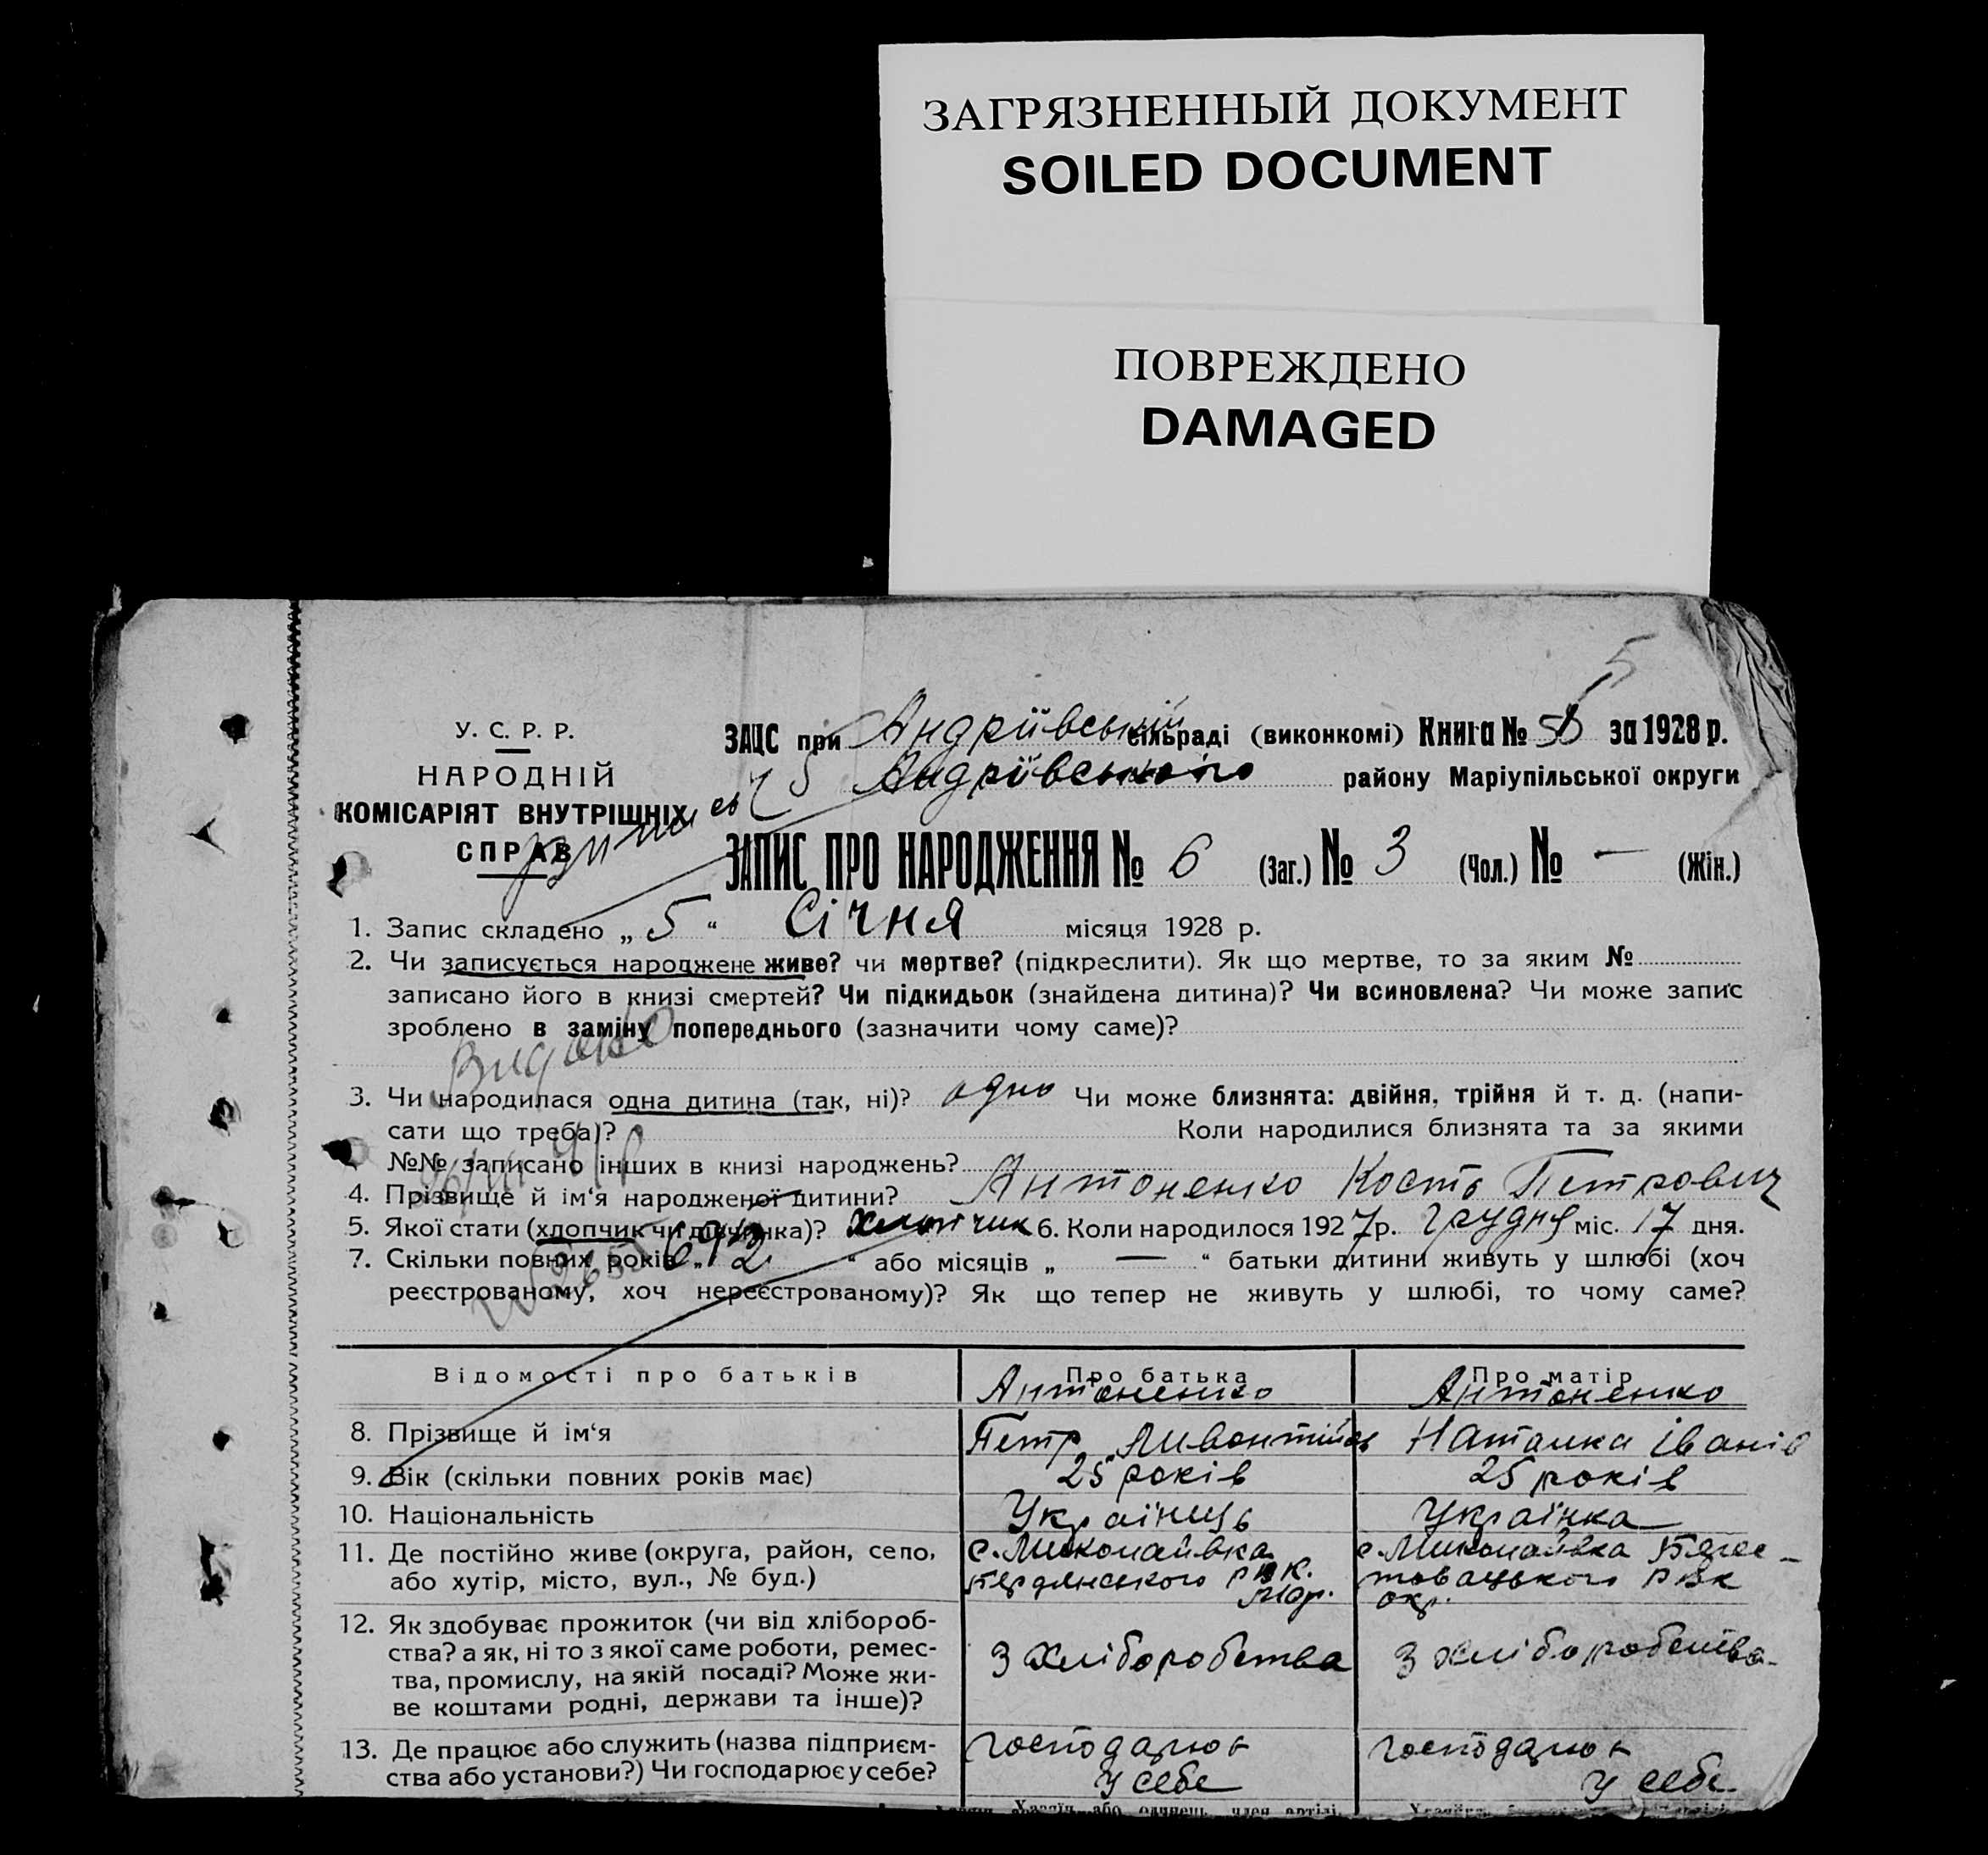 ЗАГРЯЗНЕННЫЙ ДОКУМЕНТ
SOILED DOCUMENT
ПОВРЕЖДЕНО
DAMAGED
5
У. С. Р. Р.
НАРОДНІЙ
КОМІСАРІЯТ ВНУТРІШНІХ
СПРАВ
ЗАЦС при Андріївській сільраді (виконкомі) Книга № за 1928 р.
Андріївського району Маріупільської округи
ЗАПИС ПРО НАРОДЖЕННЯ № 6 (Заг.) № 3 (Чол.) № — (Жін.)
1. Запис складено „ 5 “ Січня місяця 1928 р.
2. Чи записується народжене живе? чи мертве? (підкреслити). Як що мертве, то за яким №
записано його в книзі смертей? Чи підкидьок (знайдена дитина)? Чи всиновлена? Чи може запис
зроблено в заміну попереднього (зазначити чому саме)?
Видано
3. Чи народилася одна дитина (так, ні)? одно Чи може близнята: двійня, трійня й т. д. (напи-
сати що треба)? Коли народилися близнята та за якими
№№ записано інших в книзі народжень?
4. Прізвище й ім‘я народженої дитини? Антоненко Кость Петрович
5. Якої стати (хлопчик чи дівчинка)? Хлопчик 6. Коли народилось 1927 р. Грудня міс. 17 дня.
7. Скільки повних років „ 2 “ або місяців „ — “ батьки дитини живуть у шлюбі (хоч
реєстрованому, хоч нереєстрованому)? Як що тепер не живуть у шлюбі, то чому саме?
Відомості про батьків Про батька Про матір
Антоненко Антоненко
8. Прізвище й ім‘я Петр Наталка Іванів
9. Вік (скільки повних років має) 25 років 25 років
10. Національність Українець Українка
11. Де постійно живе (округа, район, село, с. Миколаївка с. Миколаївка
або хутір, місто, вул., № буд.) Бердянського
12. Як здобуває прожиток (чи від хлібороб-
ства? а як, ні то з якої саме роботи, ремес- З хліборобства З хліборобства
тва, промислу, на якій посаді? Може жи-
ве коштами родні, держави та інше)?
13. Де працює або служить (назва підприєм- господарює господарює
ства або установи?) Чи господарює у себе? у себе у себе
Хазяїн або одинець, член артілі,